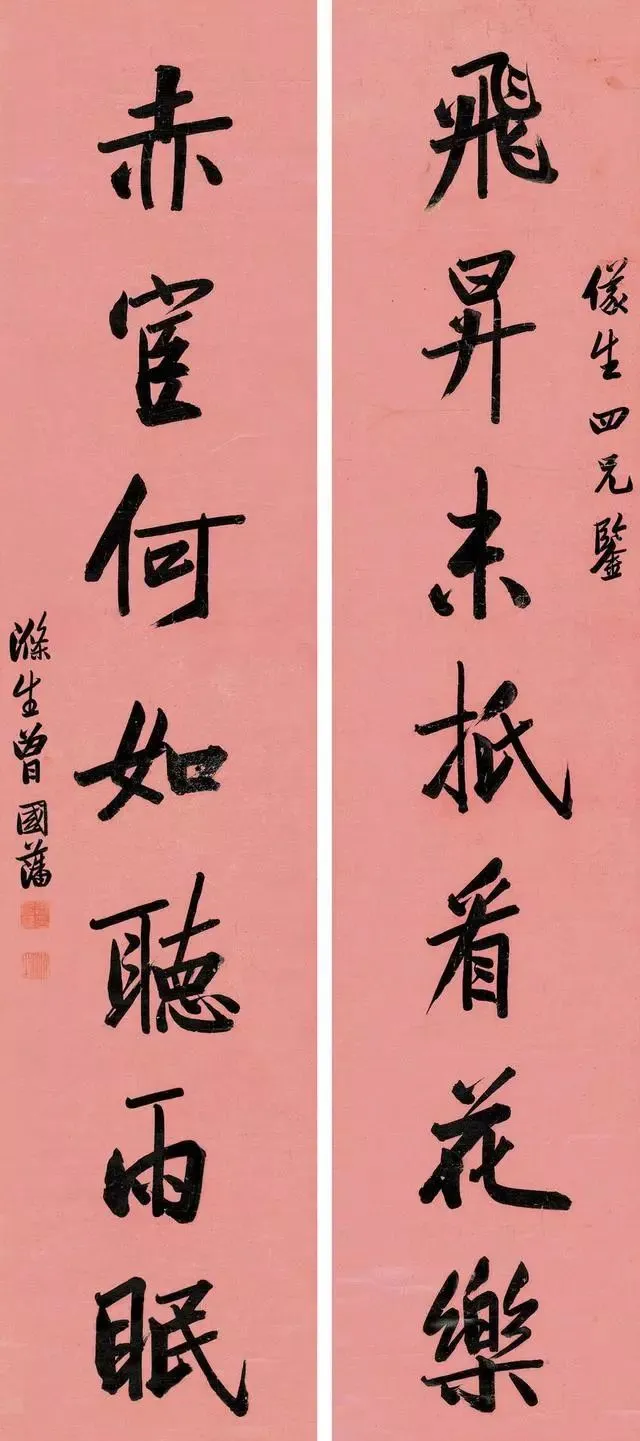 生四兄鑒
飛昇未抵看花樂
赤宦何如聽雨眠
滌生曾國藩